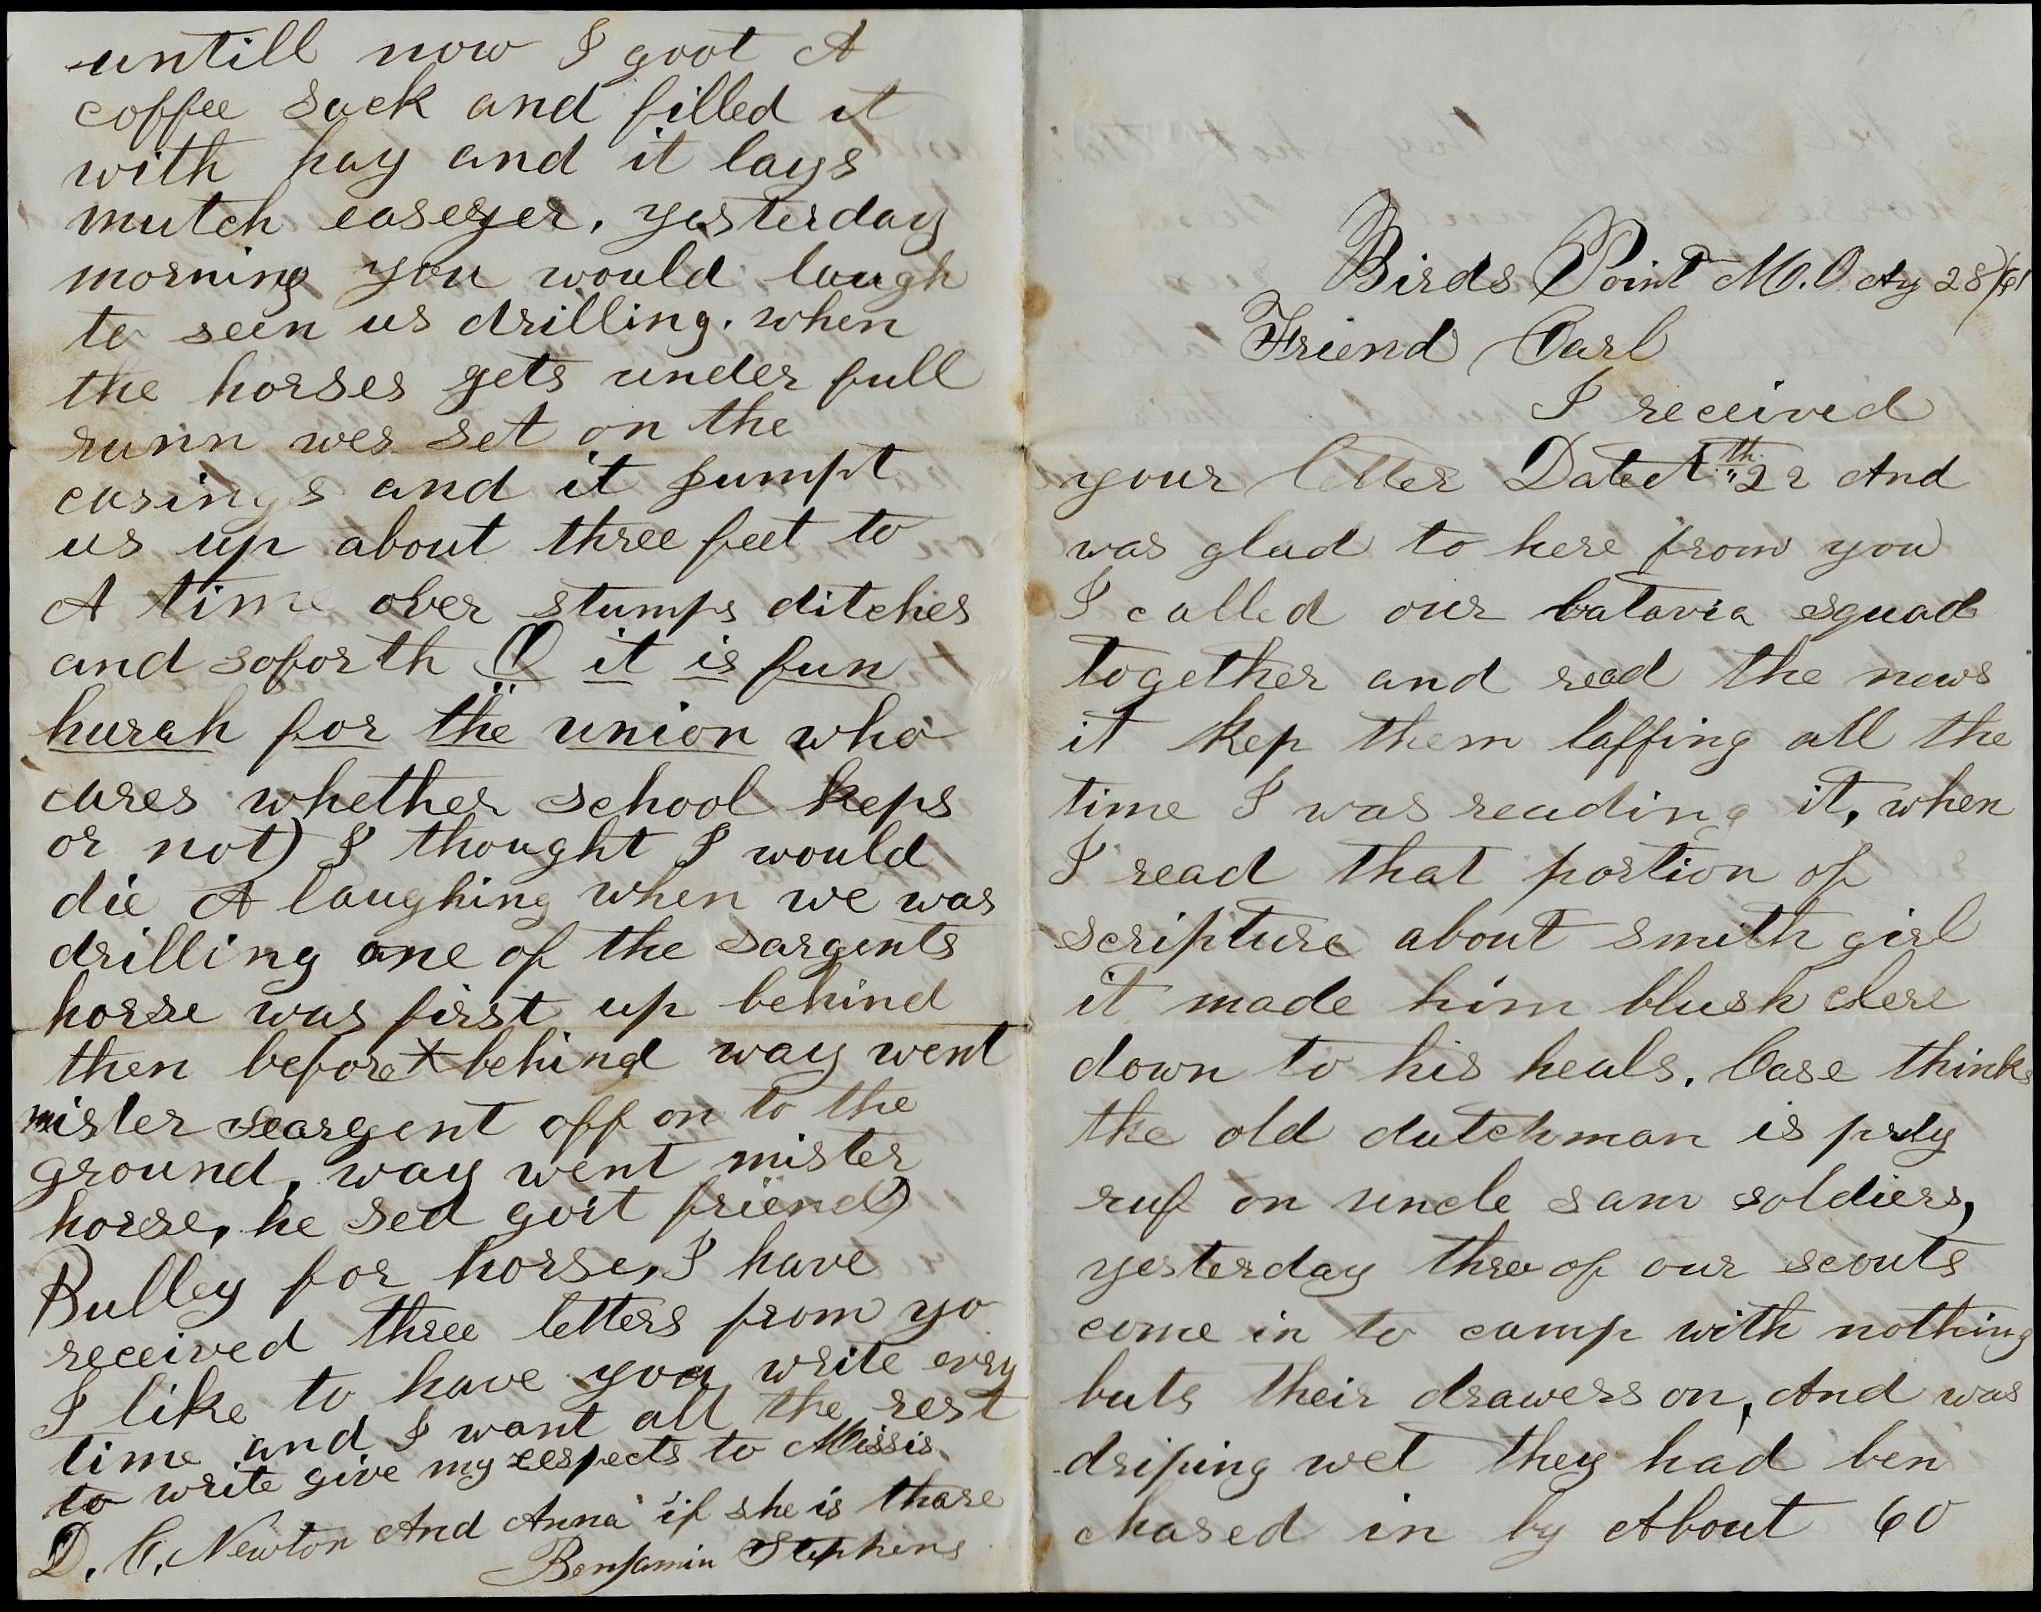 Birds Point M.O. Ag 28/61
Friend Carl
I received
your letter Dated "22th And
was glad to here from you
I called our batavia squad
together and read the news
it kep them laffing all the
time I was reading it, when
I read that portion of
scripture about smith girl
it made him blush clere
down to his heals. Case thinks
the old dutchman is prdy
ruf on uncle sam soldiers,
yesterday thre of our scouts
come in to camp with nothing
buts their drawers on, And was
driping wet they had ben
chased in by About 60
untill now I goot A
coffee sack and filled it
with hay and it lays
mutch easeyer. yesterday
morning you would laugh
to seen us drilling. when
the horses gets under full
runn wes set on the
casings and it jumpt
us up about three feet to
A time over stumps ditches
and soforth (O it is fun
hurah for the union who
cares whether school keps
or not) I thought I would
die A laughing when we was
drilling one of the sargents
horse was first up behind
then before behind way went
mister seargent off on to the
ground, way went mister
horse, he sed goit friend)
Bulley for horse, I have
received three letters from yo
I like to have you write evry
time and I want all the rest
to write give my respects to Missis
D. C. Newton And Anna if she is thare
Benjamin Stephens